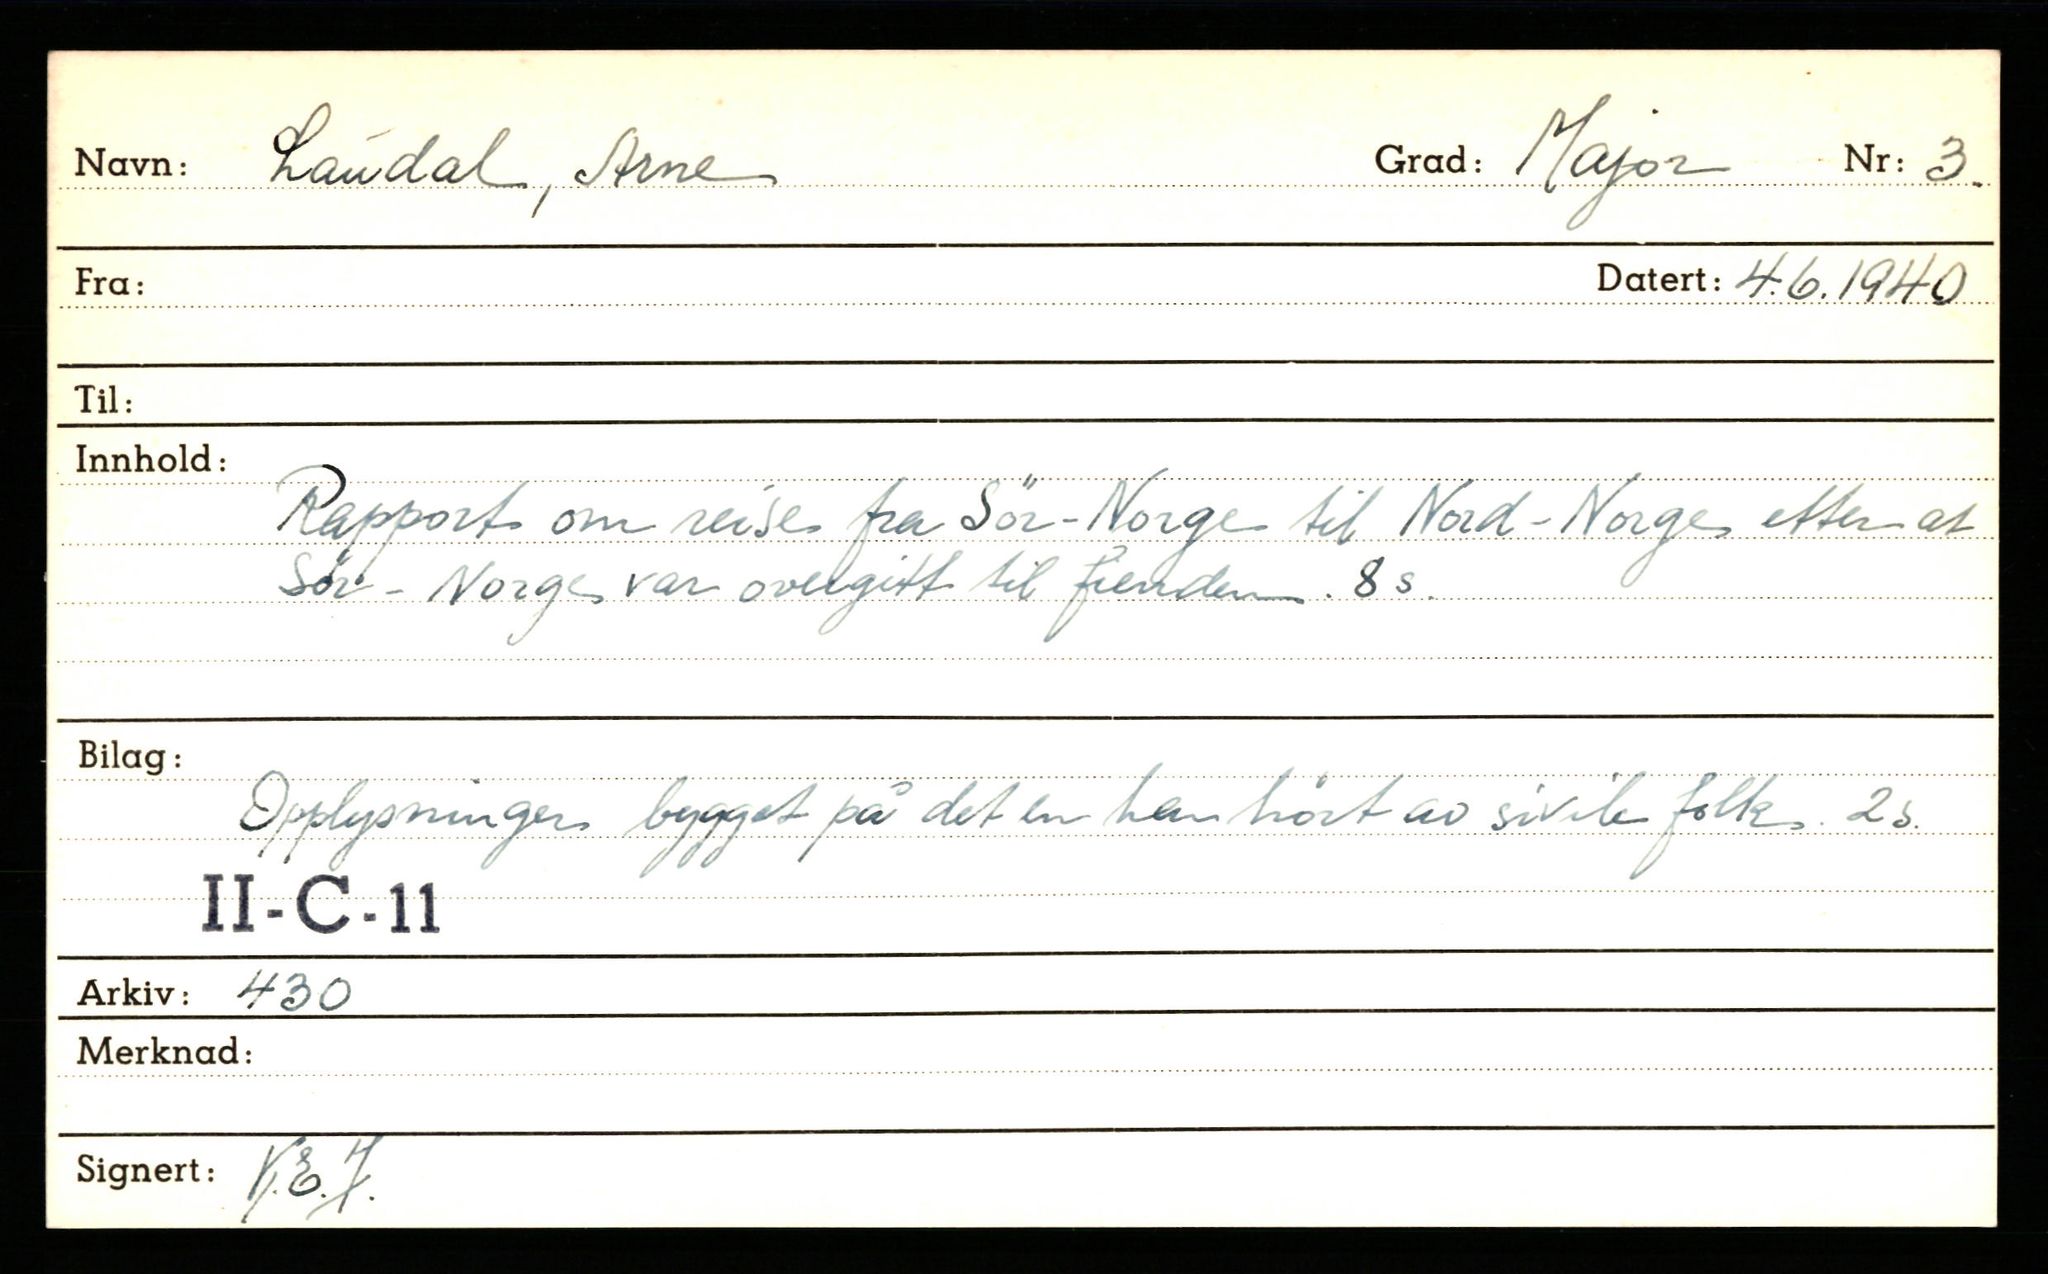 Navn: Laudal, Arne Grad: Major Nr: 3.
Fra: Datert: 4.6.1940
Til:
Innhold:
Rapport om reise fra Sör-Norge til Nord-Norge efter at
Sör-Norge var overgitt til fienden. 8 s.
Bilag:
Opplysninger bygget på det en har hört av sivile folk. 2 s.
II-C-11
Arkiv: 430
Merknad:
Signert: K.E.J.